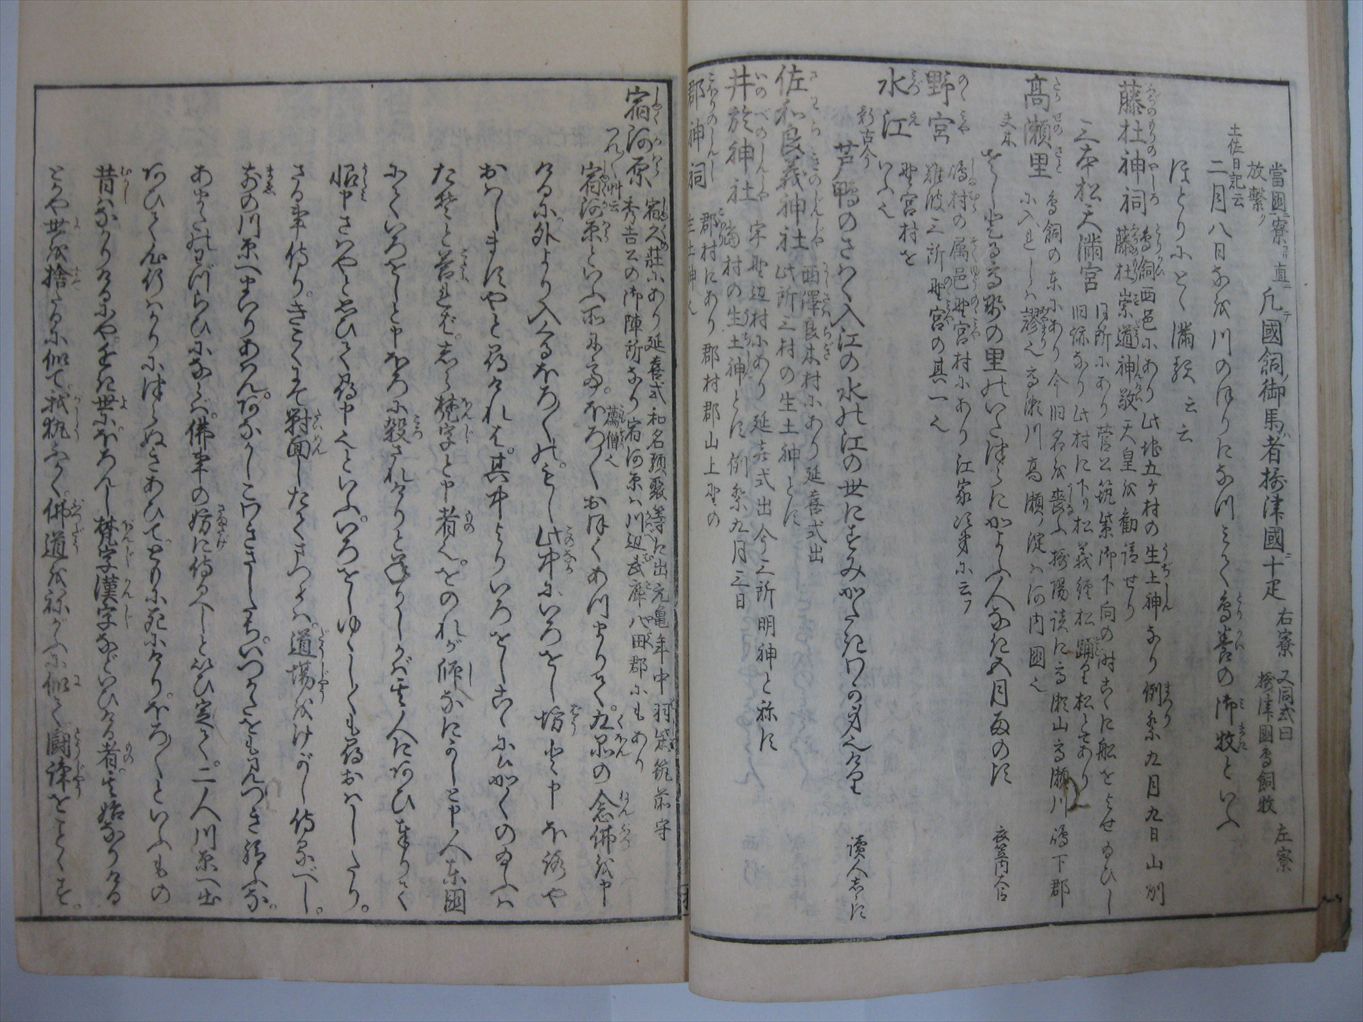 當國寮ヨリ直ニ凡國飼御馬者攝津國十疋 右寮 又同式曰 攝津國鳥飼牧 左寮
放繋
土佐日記云
二月八日なほ川のほりになづみて鳥養の御牧といふ
ほとりにとゞ滿
藤杜神祠 鳥飼西邑にあり此地五ヶ村の生土神なり例祭九月九日
藤杜崇道神敬天皇を勧請せり
三本松天満宮 旧所にあり菅公筑紫御下向の時こゝに船をよせ
髙瀬里 鳥飼の東にあり今旧名を喪ふ攝陽談に高瀬山高瀬川嶋下郡に入れしハ謬也高瀬川高瀬ノ淀ハ河内國也
夫木
さしのぼる高瀬の里のいたづらにかよふ人なき五月雨のころ 衣笠内大臣
野宮 嶋村の属邑野宮村にあり江家次第に云フ
難波三所野宮の其一也
水江 野宮村をいふ也
新古今
芦鴨のさわぐ入江の水の江の世にすみがたきわが身なりけり 讀人しらず
佐和良義神社 西澤良木村にあり延喜式出
此所三村の生土神とす
井於神社 字野辺村にあり延喜式出今三所明神と称す
嶋村の生土神とす例祭九月三日
郡神祠 郡村にあり郡村郡山上野の
生土神也
宿河原 宿久荘にあり延喜式和名類聚等に出元亀年中羽柴筑前守
秀吉公の御陣所なり宿河原ハ川辺武庫八田郡にもあり
つれ〴〵艸云 薦僧也
宿河原といふ所にて。ぼろ〳〵おほくあつまりて。九品の念佛を申
けるに外より入くるぼろ〳〵の。もし此中にいろをし坊と申ぼろや
おはしますやと尋ければ。其中よりいろをしこゝに候かくのたまふハ
たぞと答れば。しら梵字と申者也。をのれが師なにがしと申人東國
にていろをしと申ぼろに殺されけりと承りしかバ其人にあひ奉りて
恨申さばやと思ひて尋申也といふ。いろをしゆゝしくも尋おはしたり。
さる事侍りき。こゝにて對面したてまつらば。道場をけがし侍るべし。
まへの川原へまゐりあハん。あなかしこわきざしたち。いづかたをもみつぎ給ふな。
あまたのわづらひにならバ。佛事の妨に侍べしといひ定て。二人川原へ出
あひて心行バかりにつらぬきあひて。ともに死にけり。ぼろ〳〵といふもの
昔ハなかりけるにや。近き世にぼろんじ梵字漢字などいひける者。其始なりける
とかや世を捨たるに似て我執ふかく佛道を願ふに似て闘諍をことゝす。